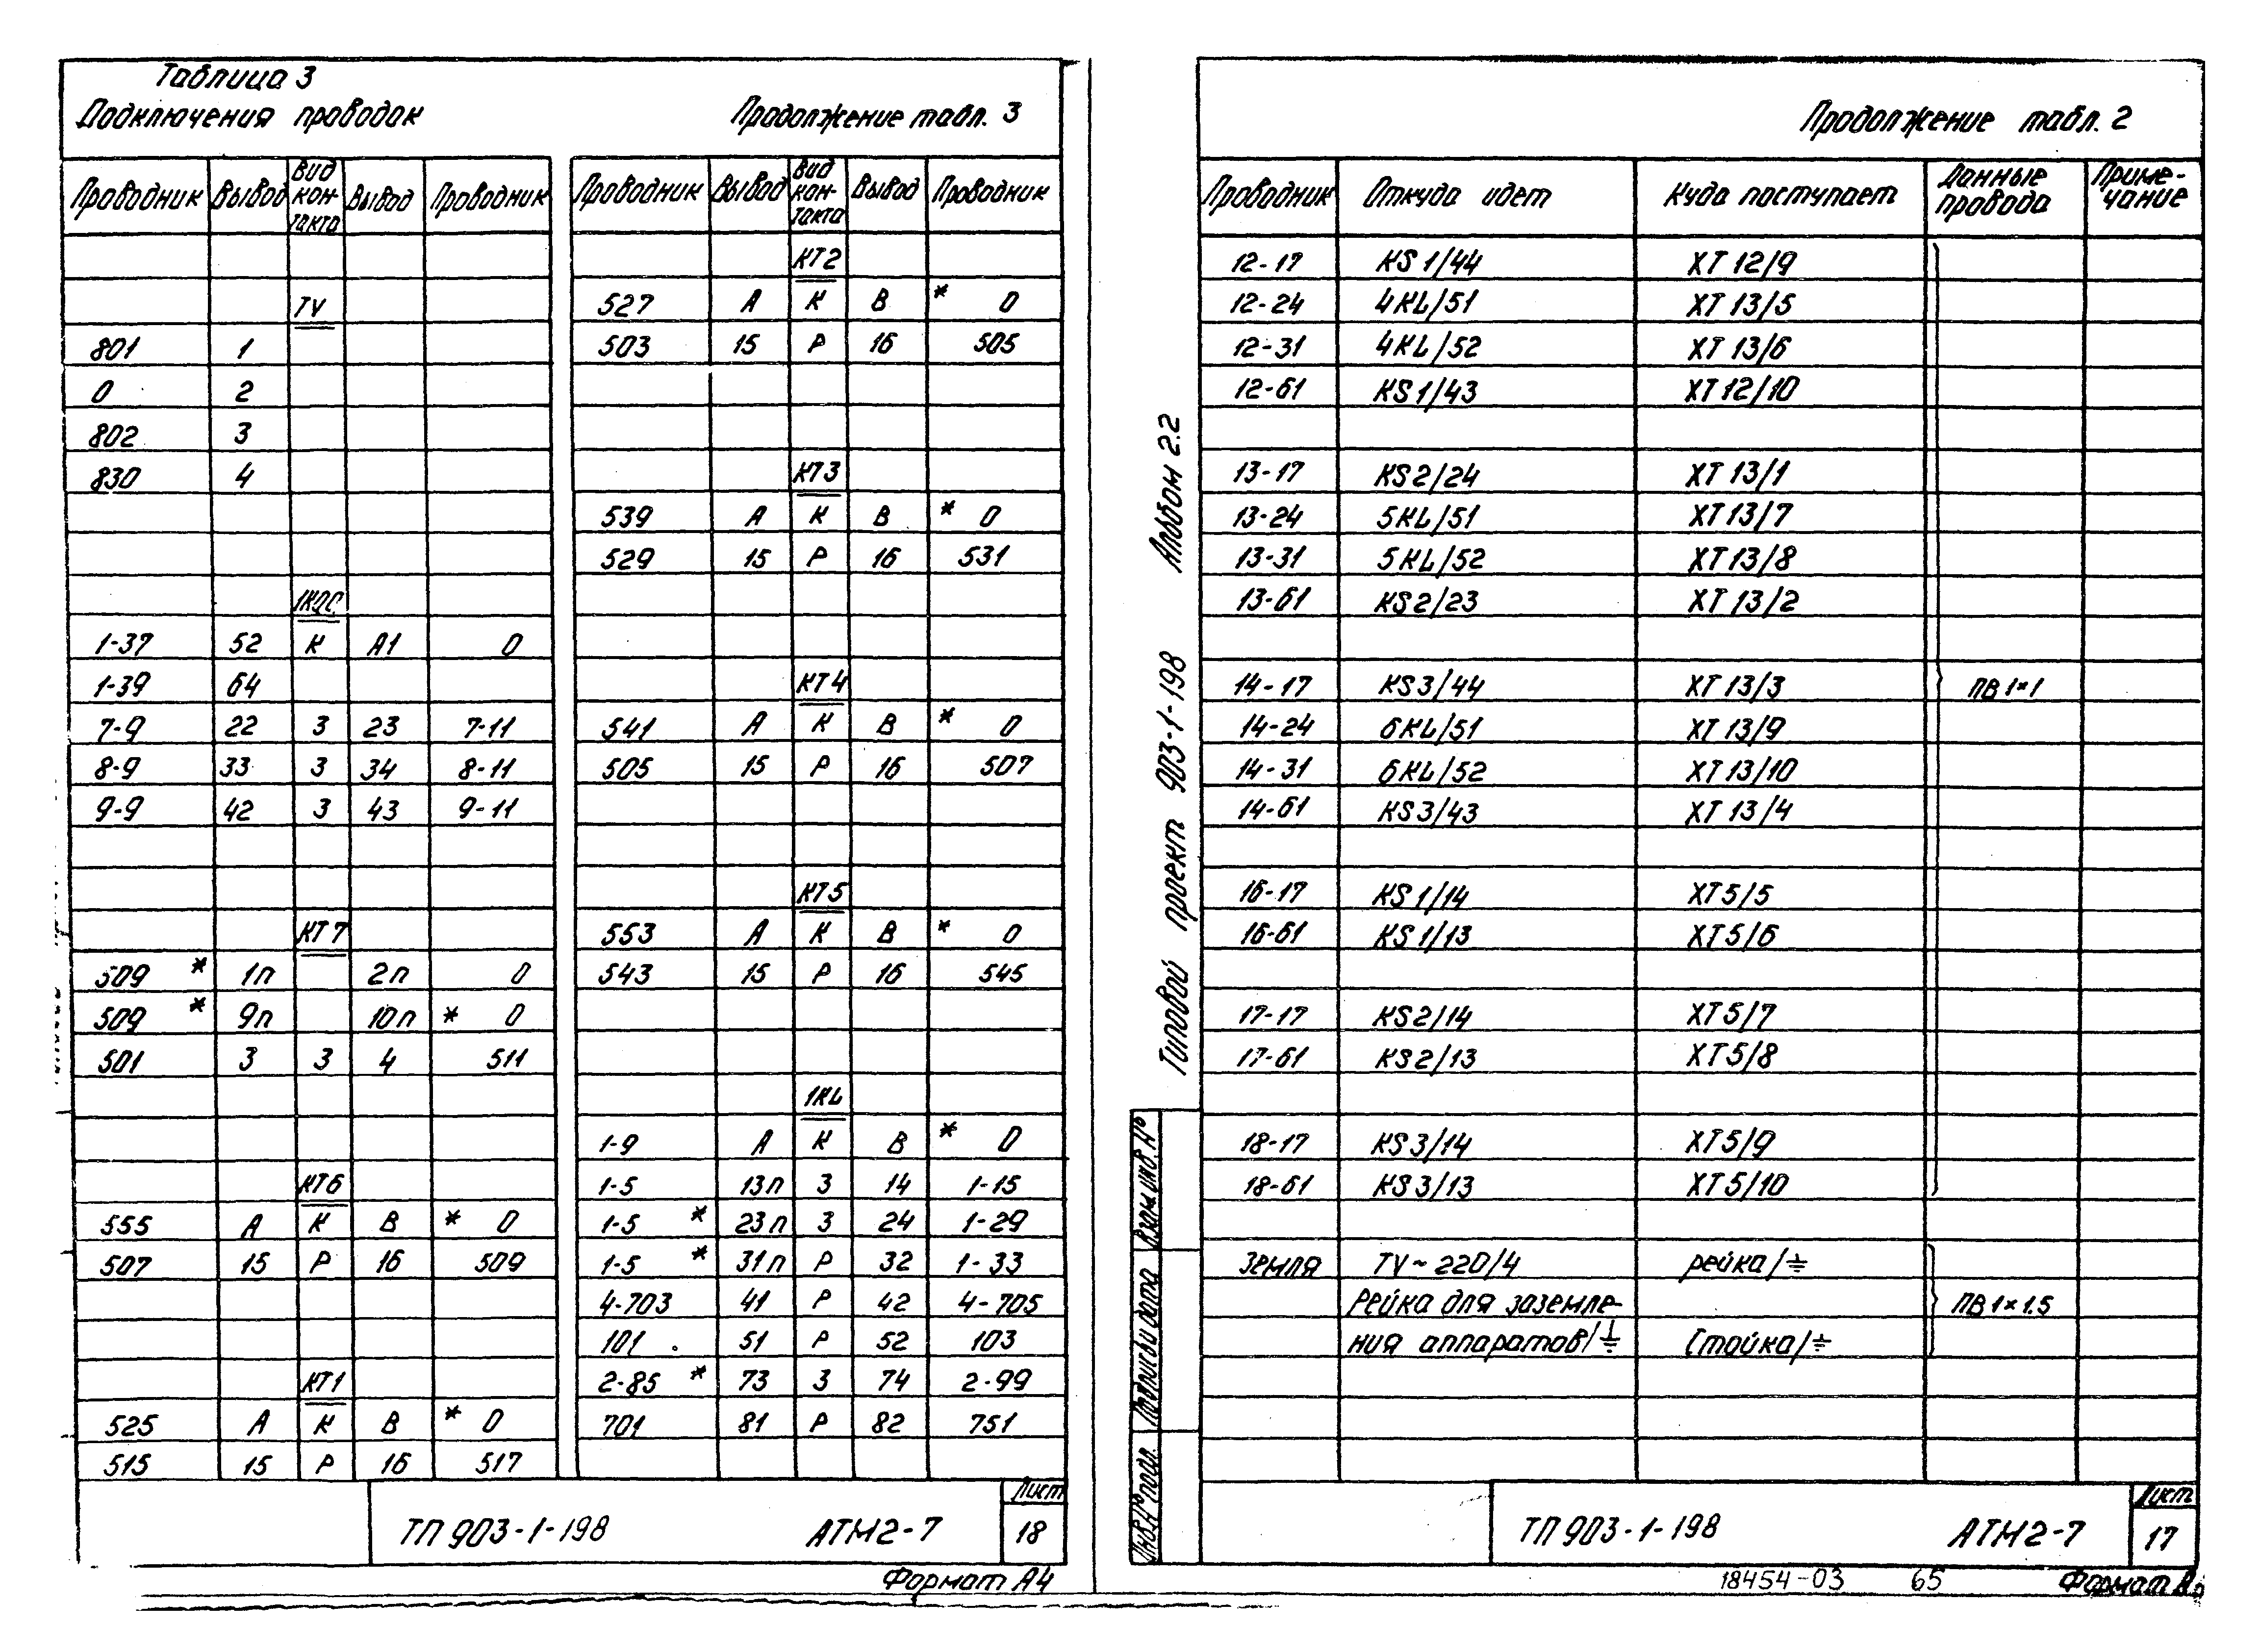 Таблица 3
Подключения проводок
Проводник Вывод Вид контакта Вывод Проводник
TV
801 1
0 2
802 3
830 4
1-37 52 К А1 0
1-39 64
7-9 22 З 23 7-11
8-9 33 З 34 8-11
9-9 42 З 43 9-11
КТ7
509 * 1п 2п 0
509 * 9п 10п * 0
501 3 З 4 511
КТ6
555 А К В * 0
507 15 Р 16 509
КТ1
525 А К В * 0
515 15 Р 16 517
Продолжение табл. 3
Проводник Вывод Вид контакта Вывод Проводник
КТ2
527 А К В * 0
503 15 Р 16 505
КТ3
539 А К В * 0
529 15 Р 16 531
КТ4
541 А К В * 0
505 15 Р 16 507
КТ5
553 А К В * 0
543 15 Р 16 545
1KL
1-9 А К В * 0
1-5 13п З 14 1-15
1-5 * 23п З 24 1-29
1-5 * 31п Р 32 1-33
4-703 41 Р 42 4-705
101 51 Р 52 103
2-85 * 73 З 74 2-99
701 81 Р 82 751
ТП 903-1-198 АТМ2-7
Лист
18
Формат А4
Альбом 2.2
Типовой проект 903-1-198
Взам инв. №
Подпись и дата
Инв № подл.
Продолжение табл. 2
Проводник Откуда идет Куда поступает Данные провода Примечание
12-17 KS1/44 XT12/9
12-24 4KL/51 XT13/5
12-31 4KL/52 XT13/6
12-61 KS1/43 XT12/10
13-17 KS2/24 XT13/1
13-24 5KL/51 XT13/7
13-31 5KL/52 XT13/8
13-61 KS2/23 XT13/2
14-17 KS3/44 XT13/3 ПВ 1×1
14-24 6KL/51 XT13/9
14-31 6KL/52 XT13/10
14-61 KS3/43 XT13/4
16-17 KS1/14 XT5/5
16-61 KS1/13 XT5/6
17-17 KS2/14 XT5/7
17-61 KS2/13 XT5/8
18-17 KS3/14 XT5/9
18-61 KS3/13 XT5/10
Земля TV~220/4 рейка/⏚
Рейка для заземле- ПВ 1×1.5
ния аппаратов/⏚ Стойка/⏚
ТП 903-1-198 АТМ2-7
Лист
17
18454-03 65
Формат